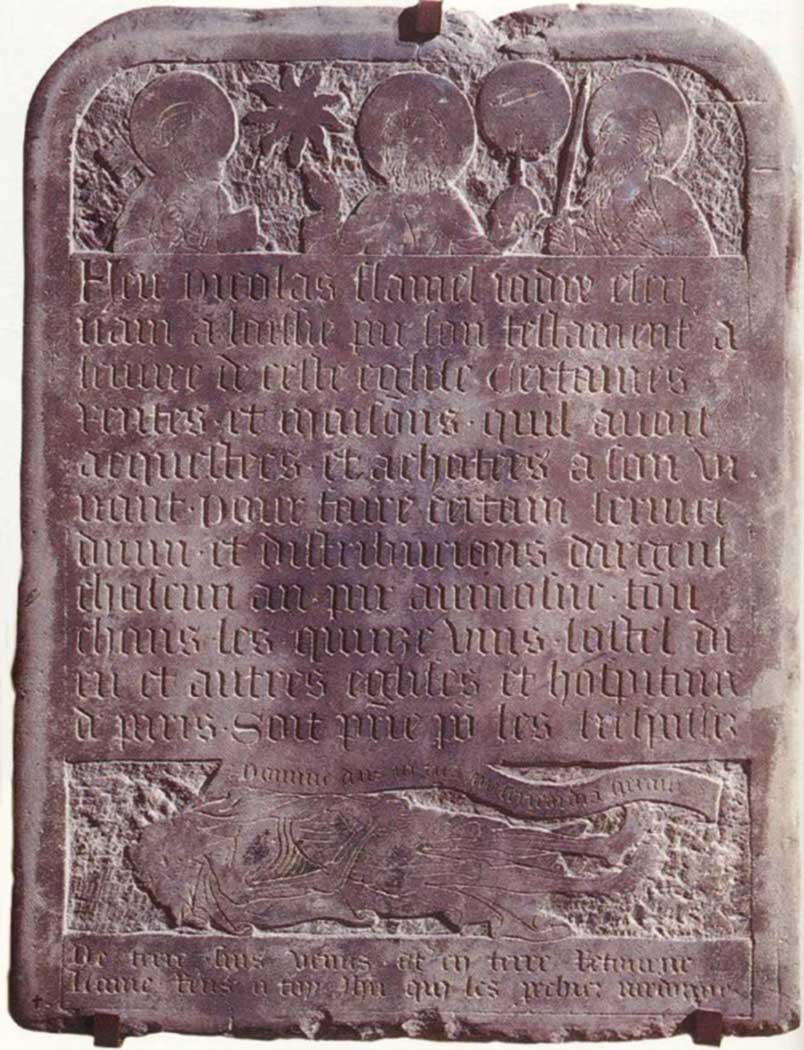 Feu nicolas flamel iadis escri
uain a laissie par son testament a
leuure de ceste eglise certaines
rentes et maisons quil auoit
acquestees et achatees a son vi
uant pour faire certain seruice
diuin et distribucions dargent
chascun an par aumosne tou
chans les quinze vins lostel di
eu et autres eglises et hospitaux
de paris Soit prie por les trespassez
Domine deus in tua misericordia speraui
De terre suis venus et en terre retourne
lame rens a toy Jhu qui les pechiez pardonne